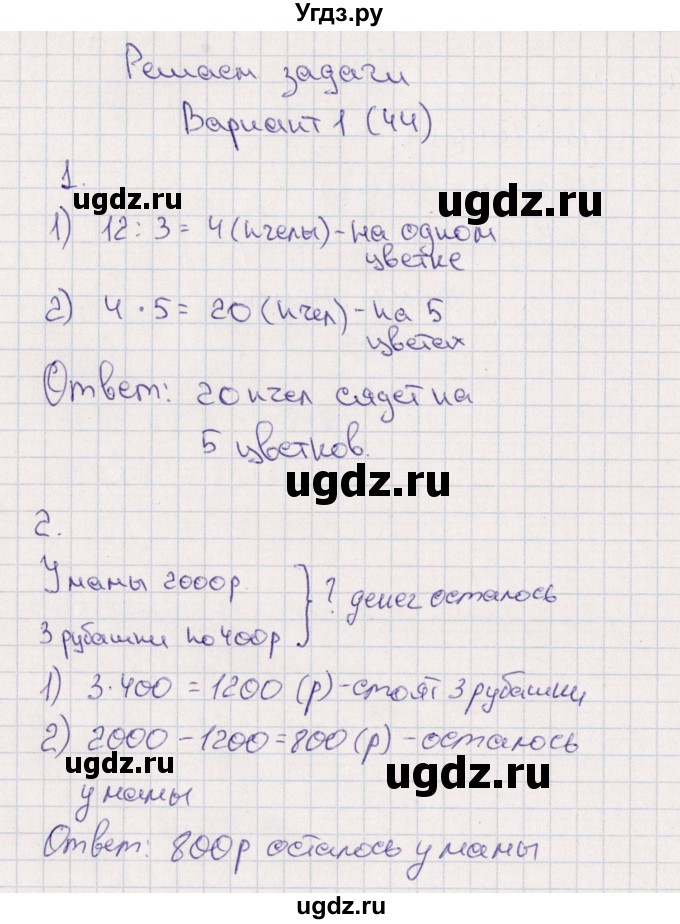 Угдз.ру
Решаем задачи
Вариант 1 (44)
1.
ugdz.ru
ugdz.ru
1) 12 : 3 = 4 (пчелы) - на одном
цветке
2) 4 · 5 = 20 (пчел) - на 5
цветах
Ответ: 20 пчел сядет на
5 цветков.
ugdz.ru
2.
У мамы 2000р.
3 рубашки по 400р } ? денег осталось
1) 3·400 = 1200 (р) - стоят 3 рубашки
2) 2000 - 1200 = 800 (р) - осталось
ugdz.ru
ugdz.ru
у мамы
Ответ: 800р осталось у мамы
ugdz.ru